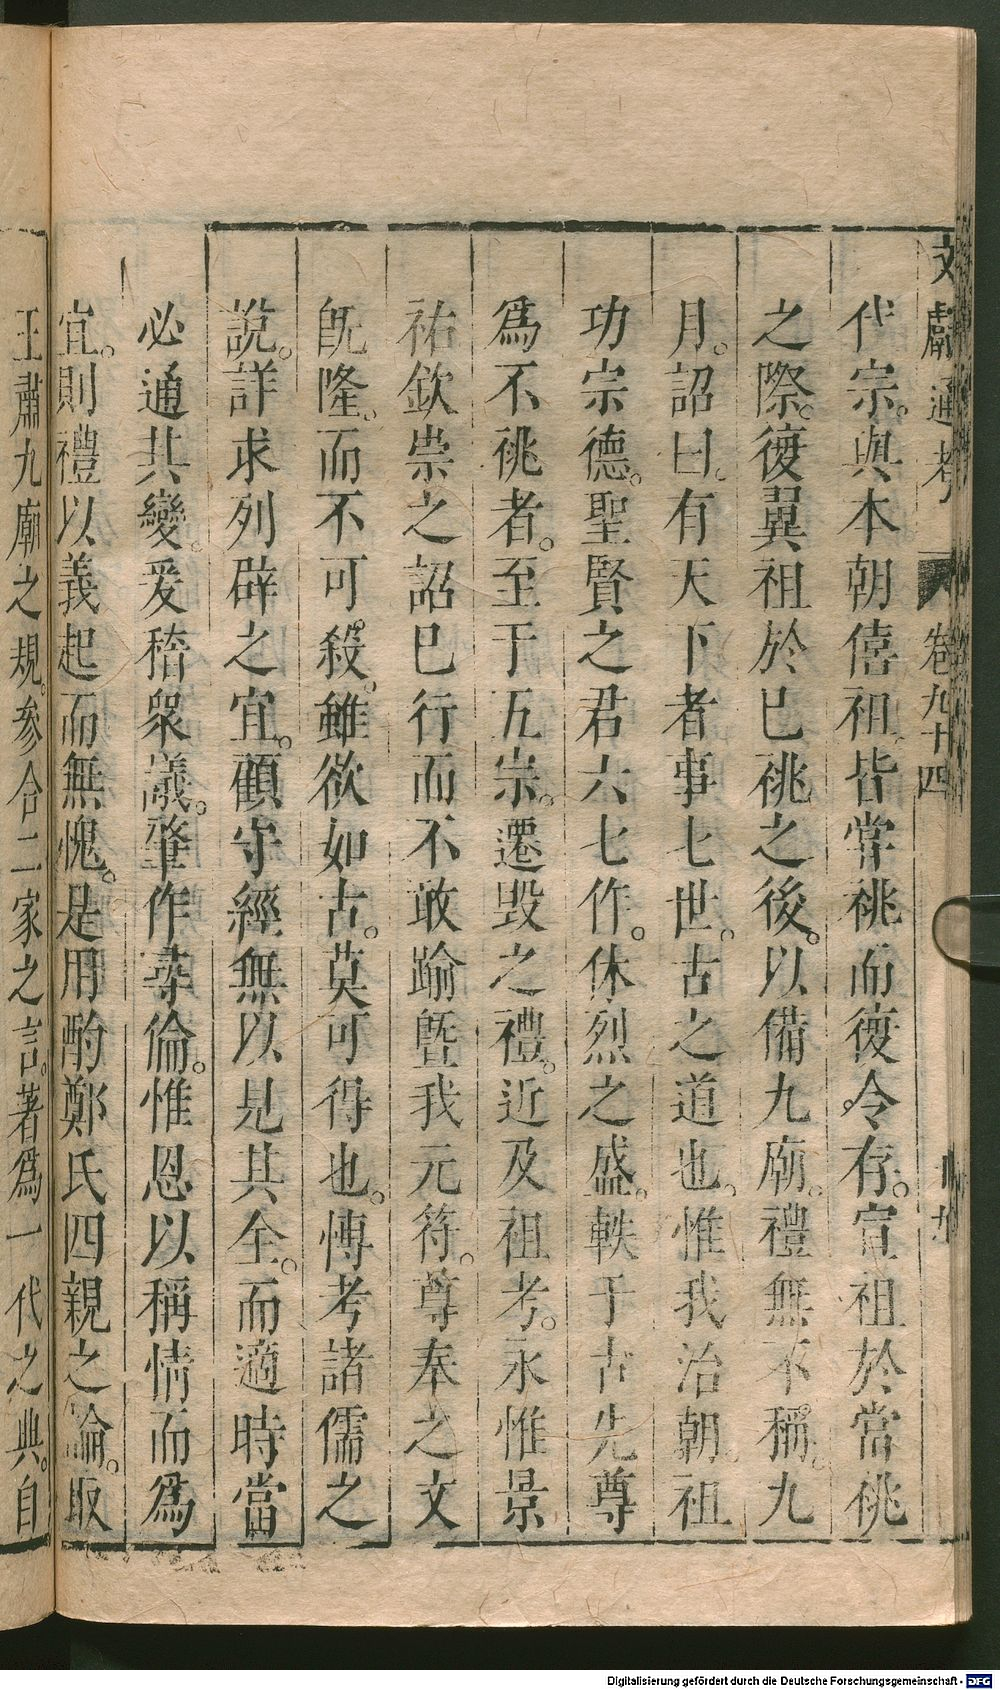 文獻通考 卷九十四
代宗。與本朝僖祖皆嘗祧而復。今存。宣祖於當祧
之際。復翼祖於已祧之後。以備九廟。禮無不稱。九
月。詔曰。有天下者事七世。古之道也。惟我治朝。祖
功宗德。聖賢之君六七作。休烈之盛。軼于古先尊
爲不祧者。至于五宗。遷毀之禮。近及祖考。永惟景
祐欽崇之詔已行而不敢踰曁我元符。尊奉之文
旣隆。而不可殺。雖欲如古。莫可得也。博考諸儒之
說。詳求列辟之宜。顧守經無以見其全。而適時當
必通其變。爰稽衆議。肇作彝倫。惟恩以稱情而爲
宜。則禮以義起而無愧。是用酌鄭氏四親之論。取
王肅九廟之規。參合二家之言。著爲一代之典。自
Digitalisierung gefördert durch die Deutsche Forschungsgemeinschaft - DFG